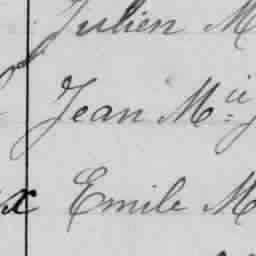 Julien M
Jean M.ie
x Emile M